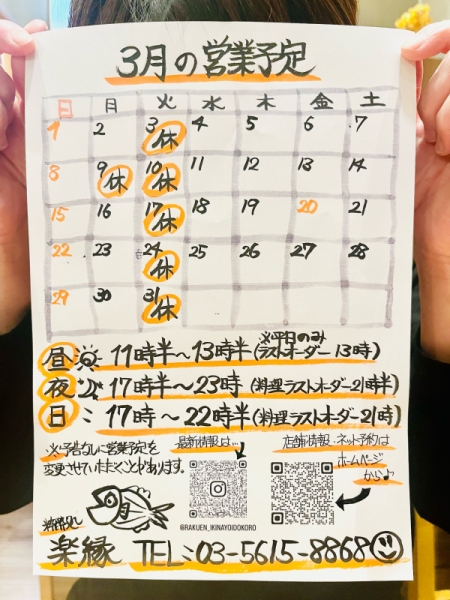 3月の営業予定
日 月 火 水 木 金 土
1 2 3 休 4 5 6 7
8 9 休 10 休 11 12 13 14
15 16 17 休 18 19 20 21
22 23 24 休 25 26 27 28
29 30 31 休
※平日のみ
昼 11時半〜13時半(ラストオーダー13時)
夜 17時半〜23時(料理ラストオーダー21時半)
日: 17時〜22時半(料理ラストオーダー21時)
※予告なしに営業予定を
変更させていただくことがあります。
最新情報は…
@RAKUEN_IKINAYOIDOKORO
店舗情報、ネット予約は
ホームページ
から♪
楽縁 TEL:03-5615-8868